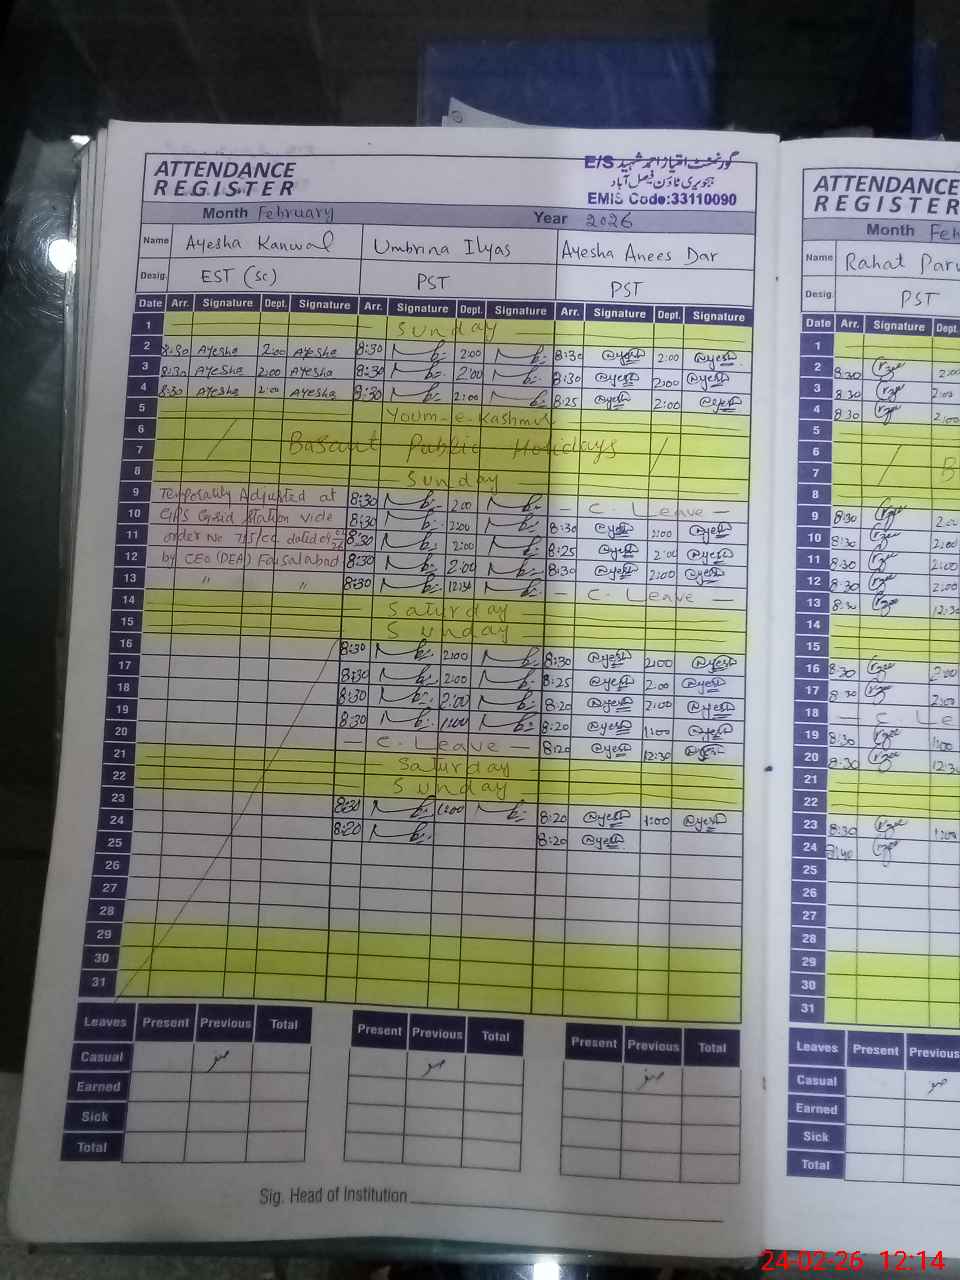 ATTENDANCE
REGISTER
گورنمنٹ امتیاز احمد شہید E/S
ہجویری ٹاؤن فیصل آباد
EMIS Code:33110090
Month February Year 2026
Name Ayesha Kanwal Umbrina Ilyas Ayesha Anees Dar
Desig. EST (SC) PST PST
Date Arr. Signature Dept. Signature Arr. Signature Dept. Signature Arr. Signature Dept. Signature
1 Sunday
2 8:30 Ayesha 2:00 Ayesha 8:30 2:00 8:30 @yesh 2:00 @yesh
3 8:30 Ayesha 2:00 Ayesha 8:30 2:00 8:30 @yesh 2:00 @yesh
4 8:30 Ayesha 2:00 Ayesha 8:30 2:00 8:25 @yesh 2:00 @yesh
5 Youm-e-Kashmir
6
7 Basant Public Holidays
8 Sunday
9 Temporarily Adjusted at 8:30 2:00 - C. Leave -
10 GPS Grid Station vide 8:30 2:00 8:30 @yesh 2:00 @yesh
11 order No dated 8:30 2:00 8:25 @yesh 2:00 @yesh
12 by CEO (DEA) Faisalabad 8:30 2:00 8:30 @yesh 2:00 @yesh
13 " " 8:30 12:30 - C. Leave -
14 Saturday
15 Sunday
16 8:30 2:00 8:30 @yesh 2:00 @yesh
17 8:30 2:00 8:25 @yesh 2:00 @yesh
18 8:30 2:00 8:20 @yesh 2:00 @yesh
19 8:30 1:00 8:20 @yesh 1:00 @yesh
20 - C. Leave - 8:20 @yesh 12:30 @yesh
21 Saturday
22 Sunday
23 8:30 1:00 8:20 @yesh 1:00 @yesh
24 8:20 8:20 @yesh
25
26
27
28
29
30
31
Leaves Present Previous Total Present Previous Total Present Previous Total
Casual صفر صفر صفر
Earned
Sick
Total
Sig. Head of Institution
ATTENDANCE
REGISTER
Month Feb
Name Rahat Parv
Desig. PST
Date Arr. Signature Dept.
1
2 8:30 2:00
3 8:30 2:00
4 8:30 2:00
5
6
7 B
8
9 8:30 2:00
10 8:30 2:00
11 8:30 2:00
12 8:30 2:00
13 8:30 12:30
14
15
16 8:30 2:00
17 8:30 2:00
18 - C. Le
19 8:30 1:00
20 8:30 12:3
21
22
23 8:30 1:00
24 8:40
25
26
27
28
29
30
31
Leaves Present Previous
Casual صفر
Earned
Sick
Total
24-02-26 12:14